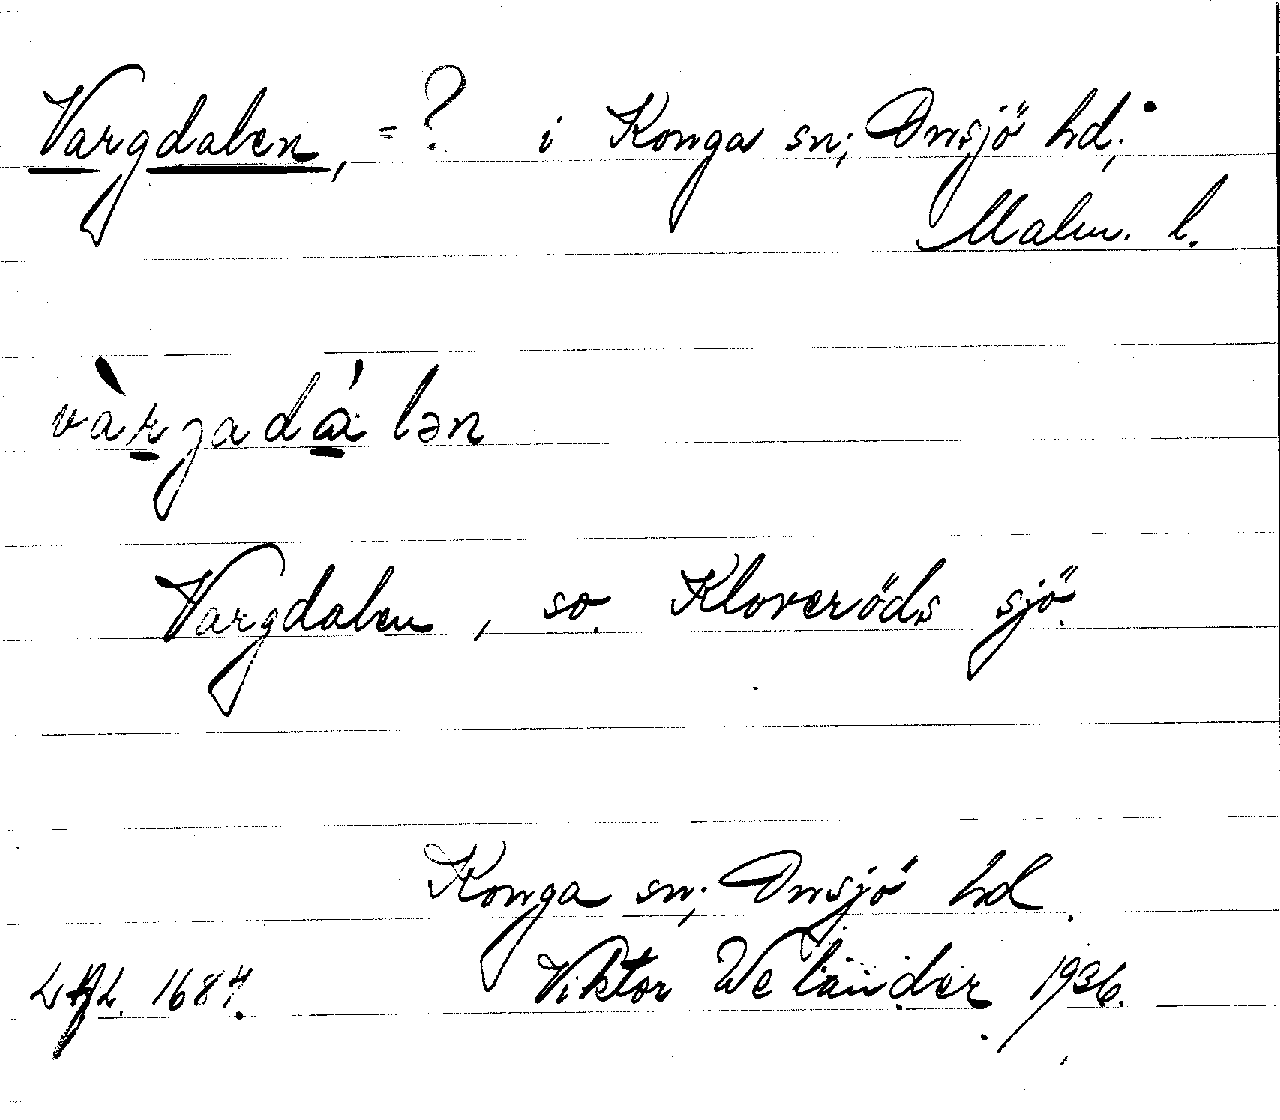 Vargdalen, =? i Konga sn; Onsjö hd;
Malm. l.
vàrjadálən
Vargdalen, so. Kloveröds sjö.
Konga sn; Onsjö hd.
Viktor Welander 1936.
1684.